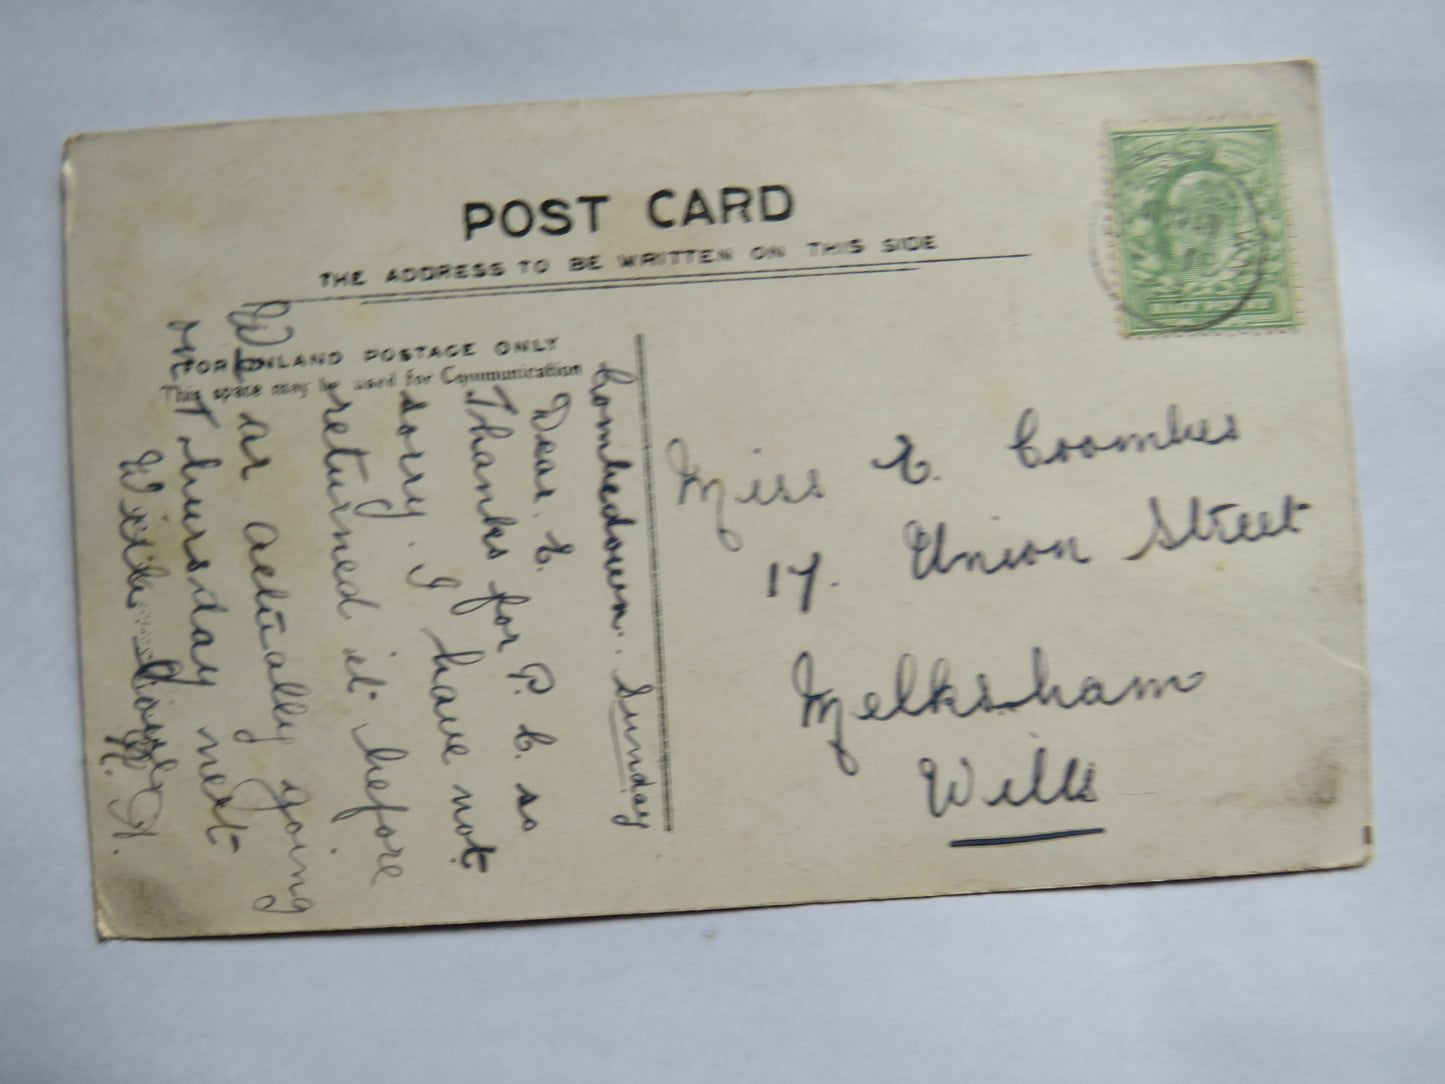 POST CARD
THE ADDRESS TO BE WRITTEN ON THIS SIDE
FOR INLAND POSTAGE ONLY
This space may be used for Communication
Combedown. Sunday
Dear E.
Thanks for P. C. so
sorry. I have not
returned it before
We ar actually going
on Thursday next
With love
Miss E. Coombes
17. Union Street
Melksham
Wilts
HALF PENNY